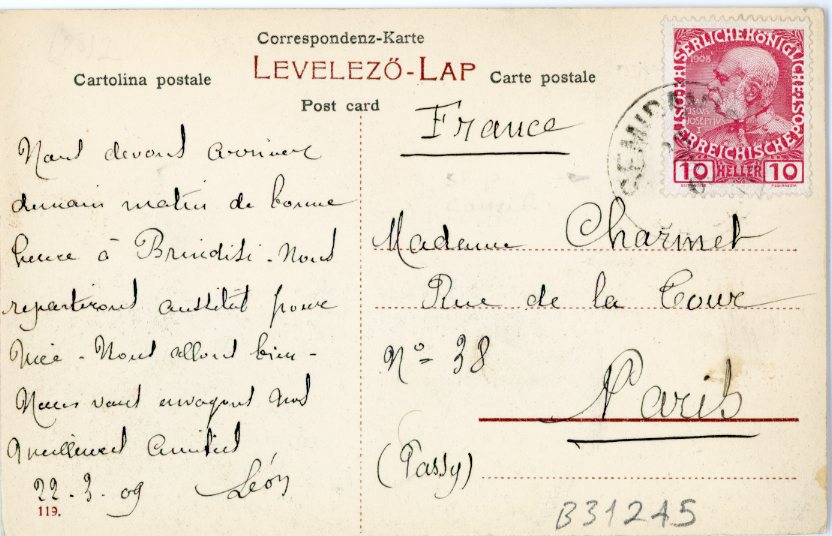 Correspondenz-Karte
Cartolina postale LEVELEZŐ-LAP Carte postale
Post card
France
Nous devons arriver
demain matin de bonne
heure à Brindisi. Nous
repartirons aussitôt pour
Nice - Nous allons bien -
Nous vous envoyons nos
meilleures amitiés
22-3-09 Léon
119.
Madame Charmet
Rue de la Tour
N° 38
Paris
(Passy)
B31245
KAISERLICHE KÖNIGLICHE
ÖSTERREICHISCHE POST
1908
10 HELLER 10
SEMIRAMIS